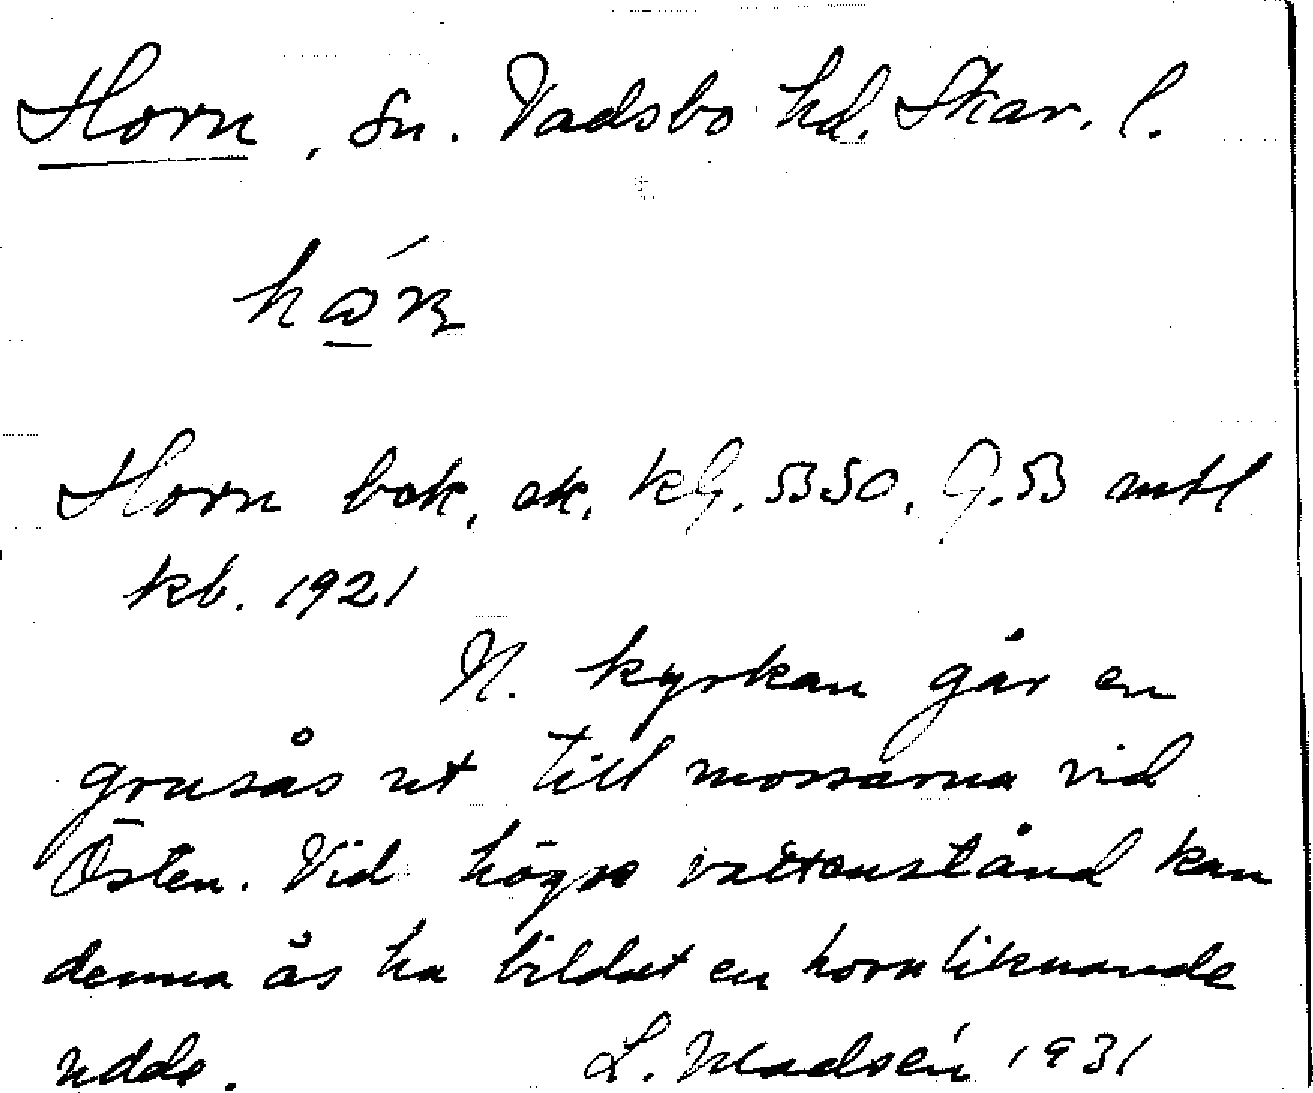 Horn, sn. Vadsbo hd. Skar. l.
Horn bok, ek, kG. 5350. G. 53 mtl
kb. 1921
N. kyrkan går en
grusås ut till mossarna vid
Östen. Vid högre vattenstånd kan
denna ås ha bildat en hornliknande
udde. L. Madsén 1931